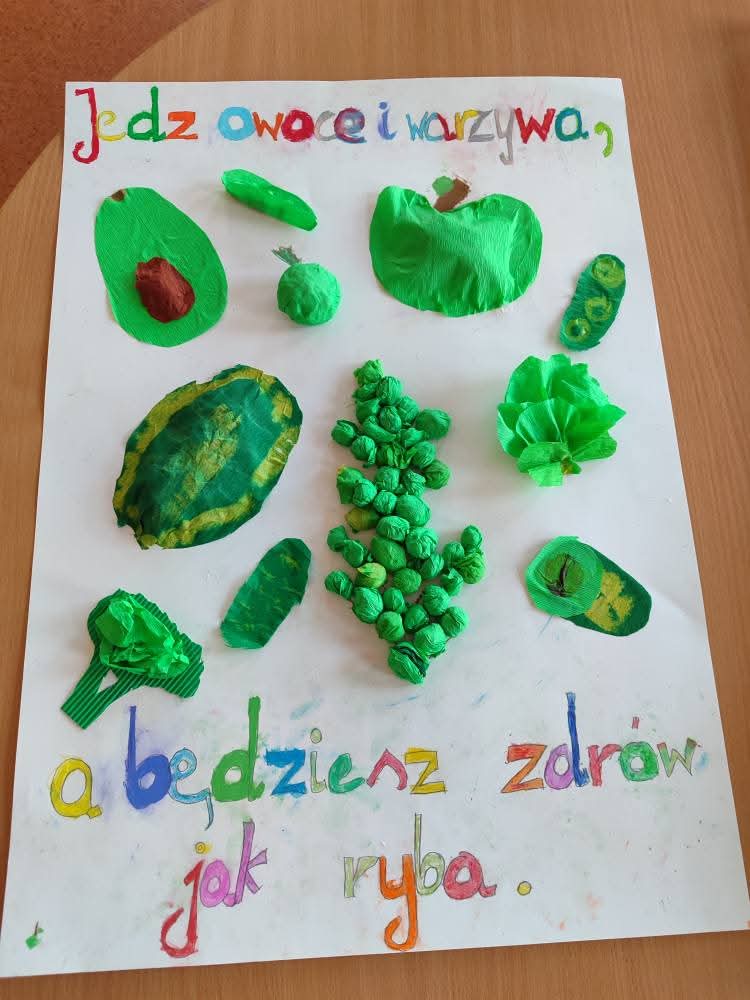 Jedz owoce i warzywa,
a będziesz zdrów
jak ryba.